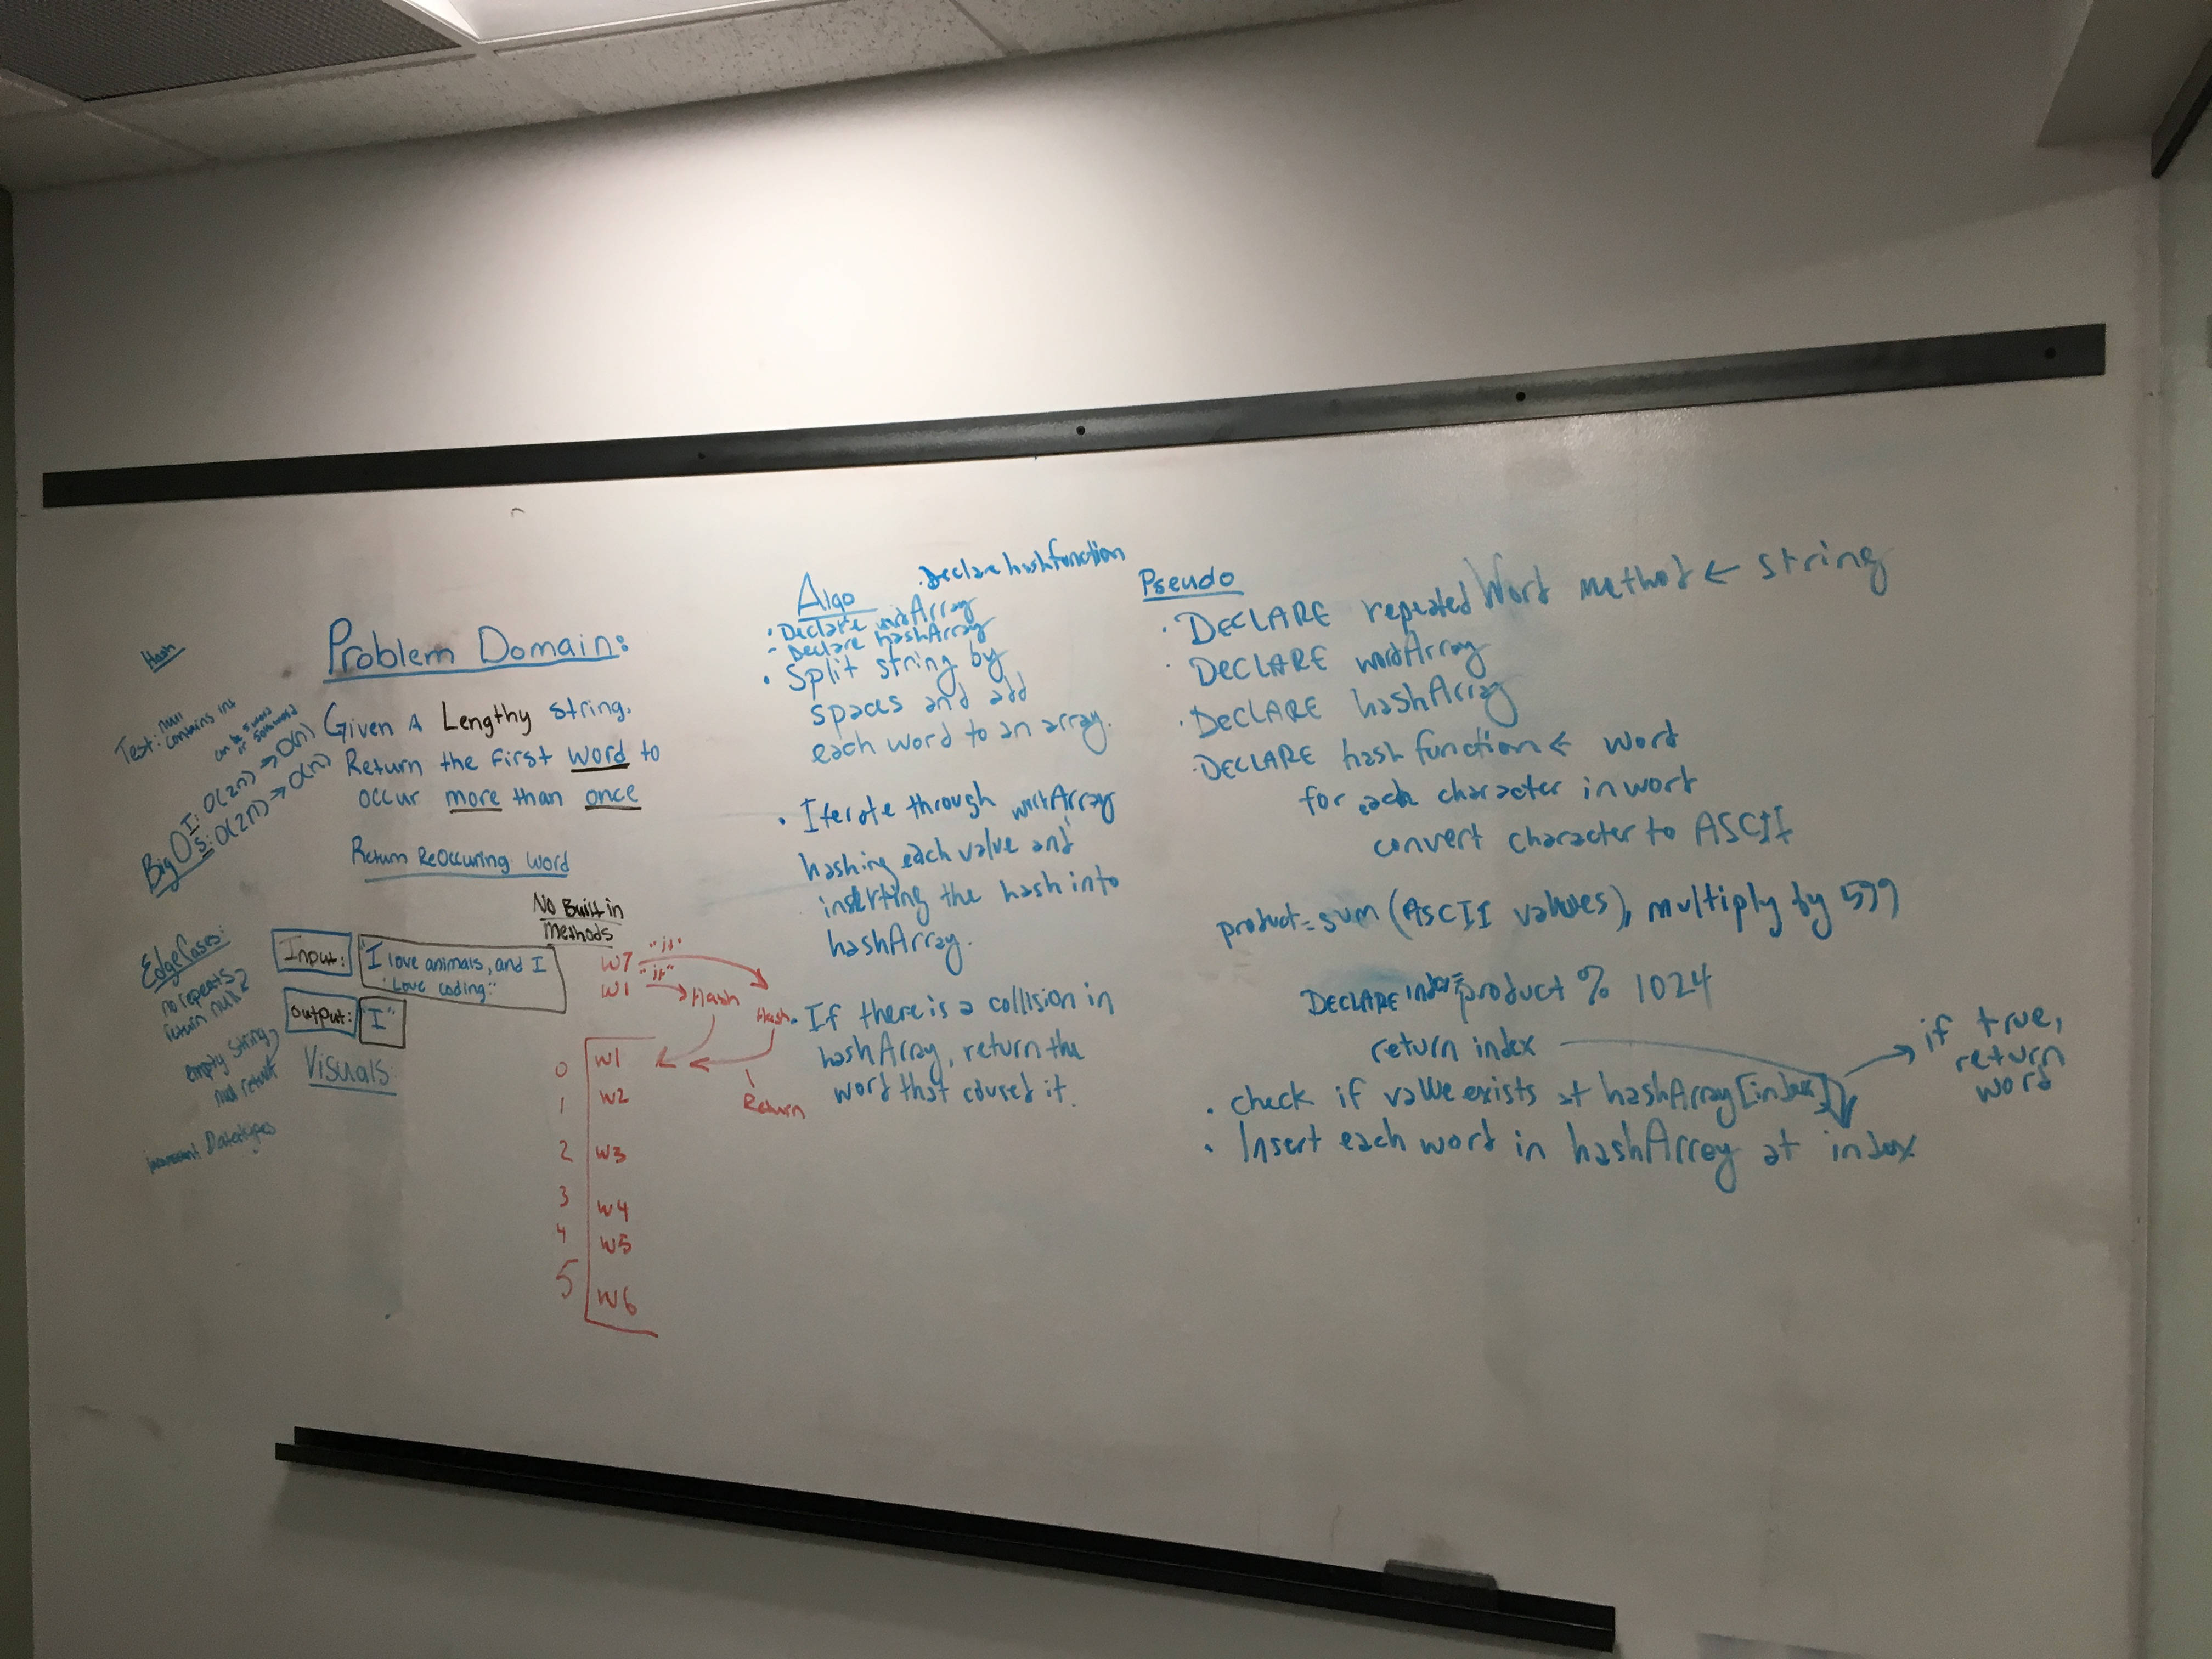 Hash
Test: null
contains int
can be 5 word
or 500 word
Big O T: O(2n) → O(n)
S: O(2n) → O(n)
Edge Cases:
no repeats
return null
empty string
null return
Datatypes
Problem Domain:
Given A Lengthy string,
Return the first word to
occur more than once
Return ReOccuring word
No Built in
Methods
Input: "I love animals, and I
Love coding"
Output: "I"
Visuals
W7 "it"
W1 "it" Hash
Hash
0 W1
1 W2
2 W3
3 W4
4 W5
5 W6
Return
Algo
• Declare hashfunction
• Declare wordArray
- Declare hashArray
• Split string by
spaces and add
each word to an array.
• Iterate through wordArray
hashing each value and
inserting the hash into
hashArray.
• If there is a collision in
hashArray, return the
word that caused it.
Pseudo
• DECLARE repeatedWord method ← string
• DECLARE wordArray
• DECLARE hashArray
• DECLARE hash function ← word
for each character in word
convert character to ASCII
product = sum (ASCII values), multiply by 599
DECLARE index = product % 1024
return index
• check if value exists at hashArray[index] → if true,
return
word
• Insert each word in hashArray at index